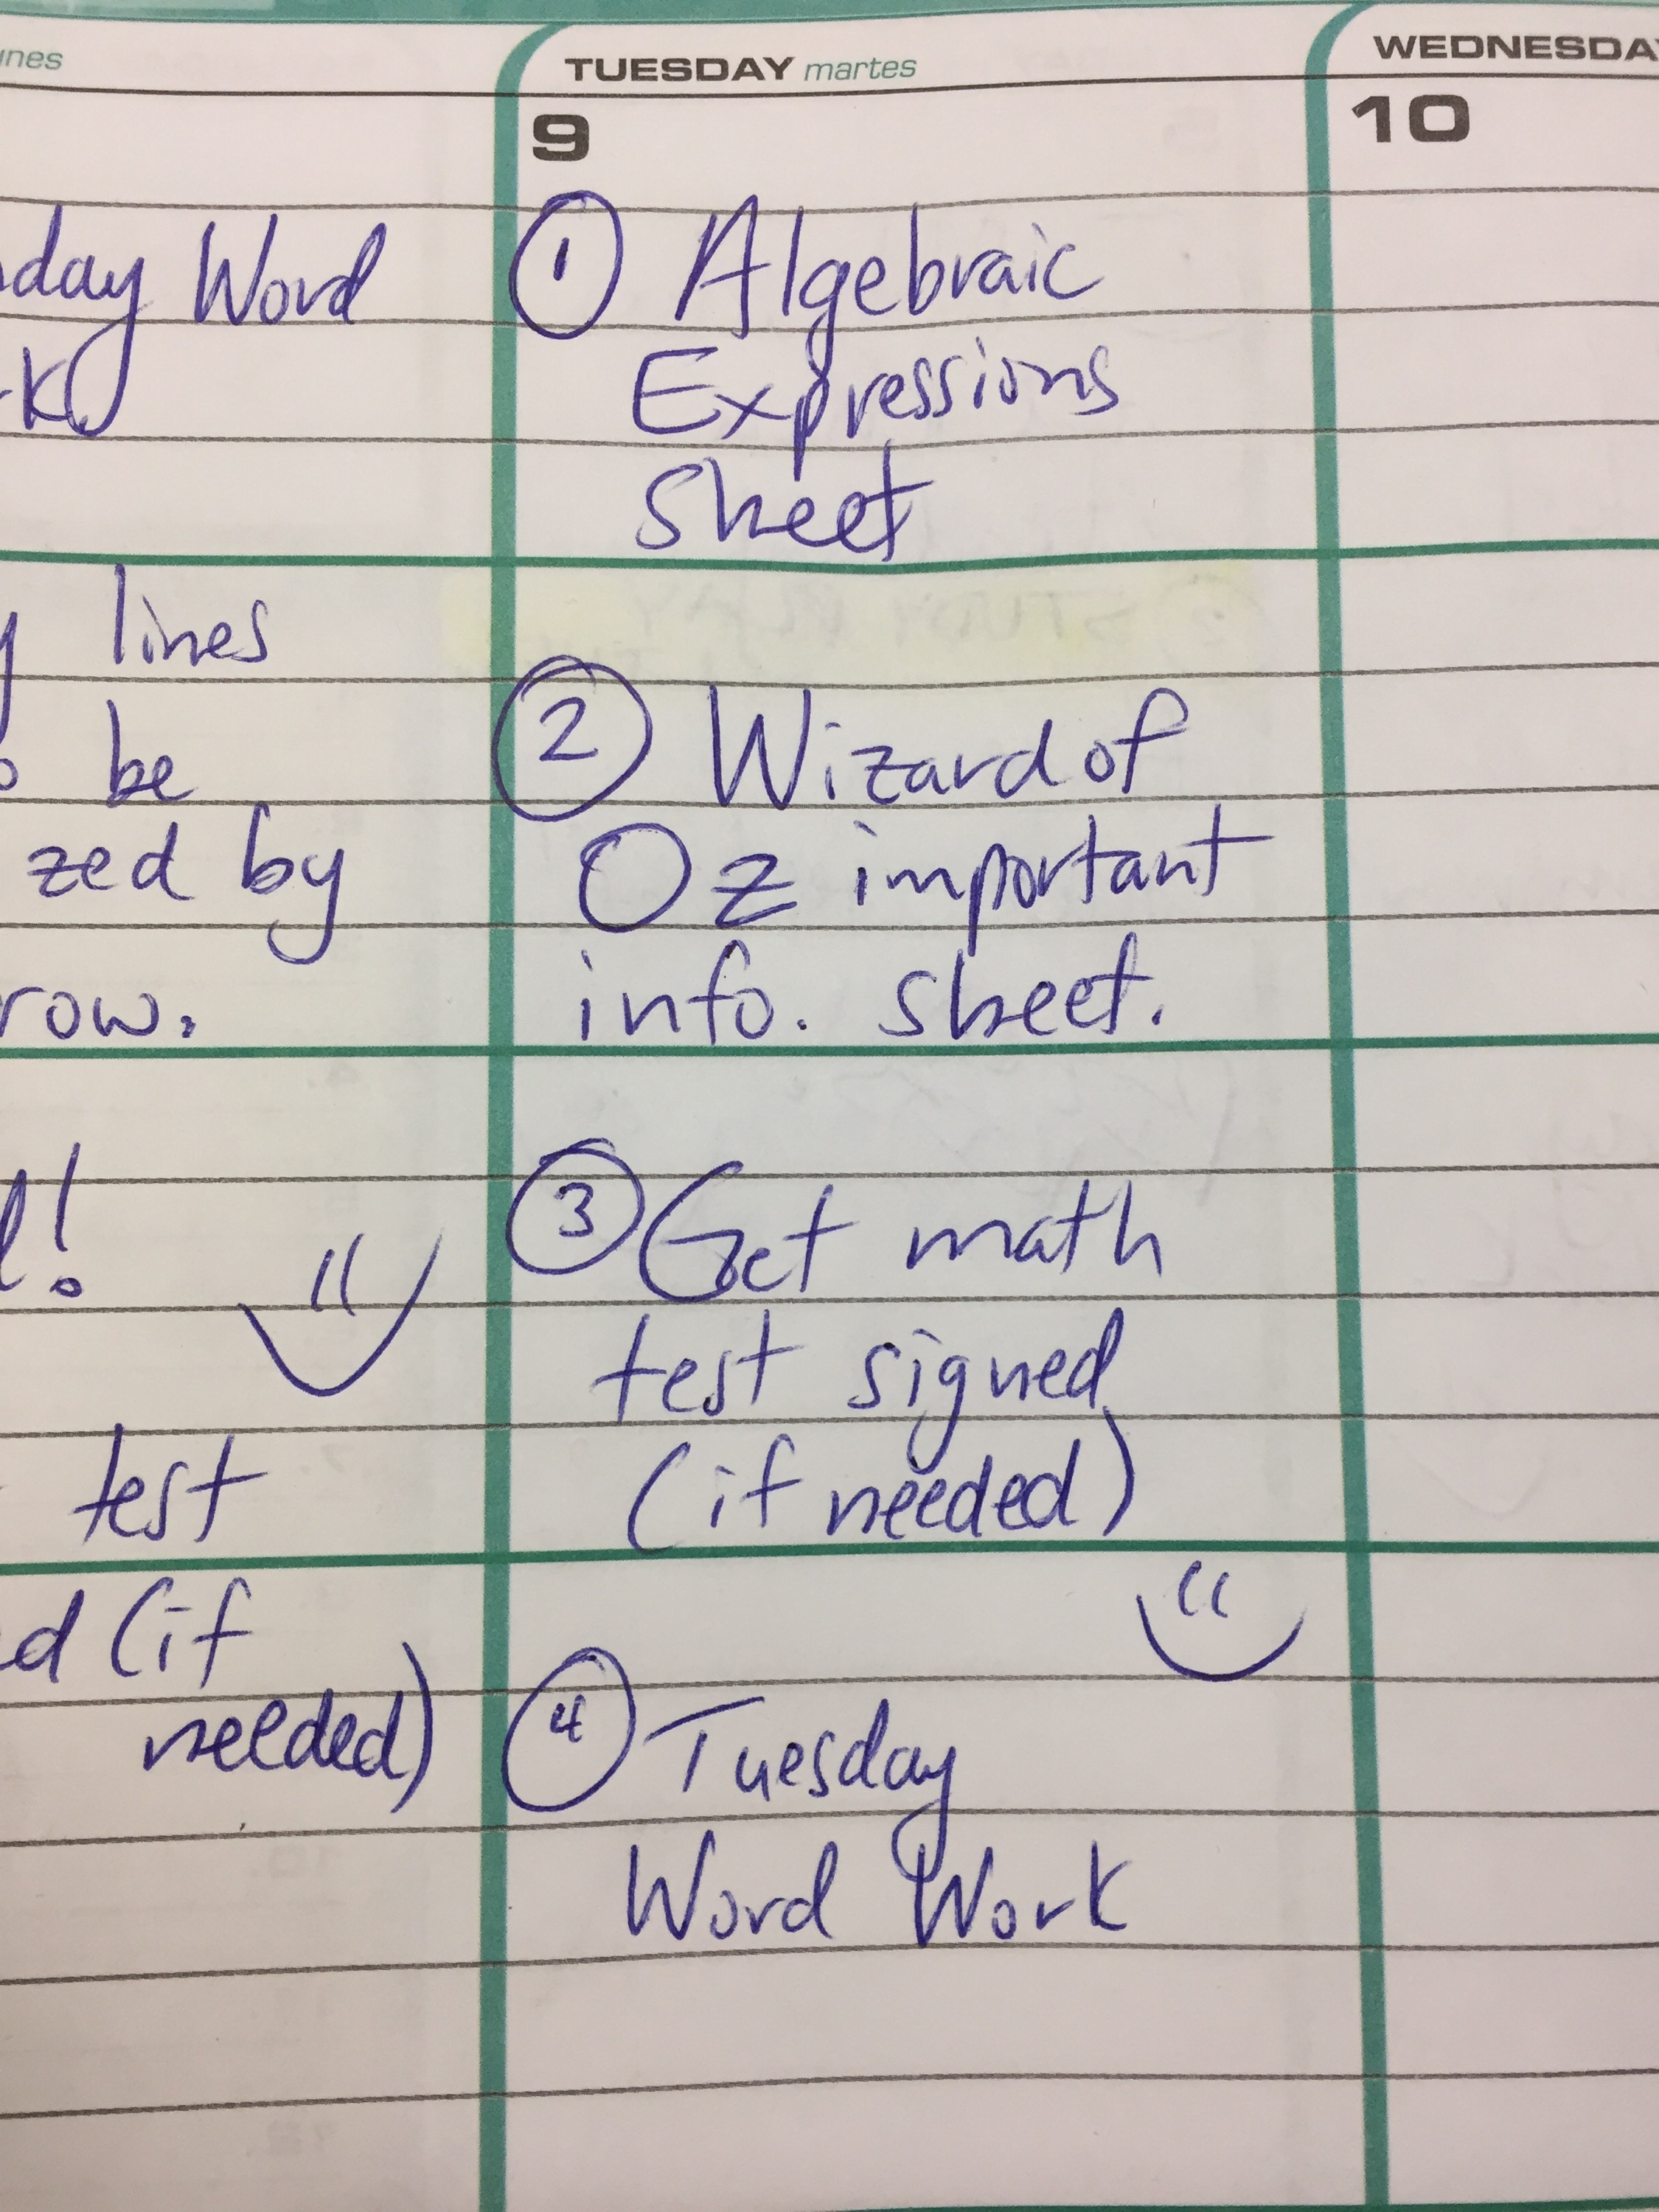 TUESDAY martes
WEDNESDA
9
10
day Word
① Algebraic
Expressions
Sheet
lines
be
② Wizard of
zed by
Oz important
row.
info. sheet.
!
③ Get math
test signed
test
(if needed)
d (if
needed)
④ Tuesday
Word Work